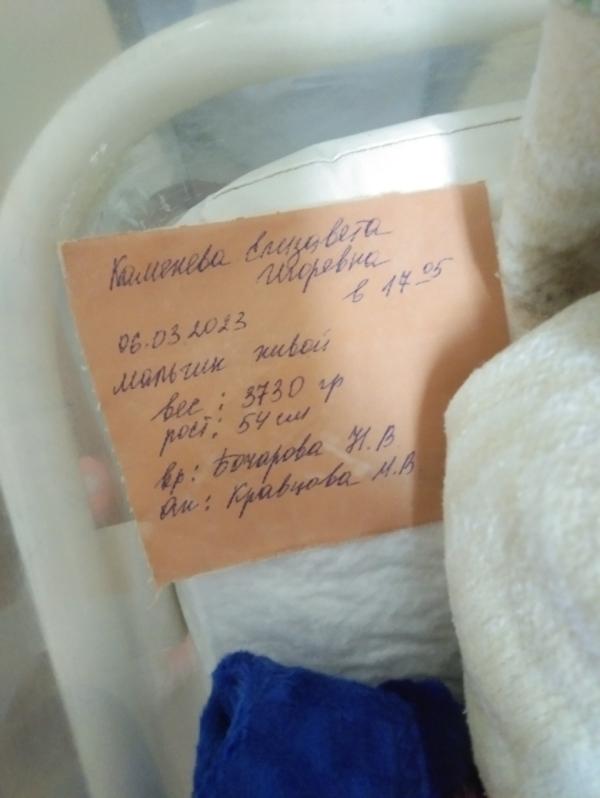 Каменева Елизавета
Игоревна
06.03.2023 в 17 05
мальчик живой
вес: 3730 гр
рост: 54 см
вр: Бочарова Н.В
ак: Кравцова М.В